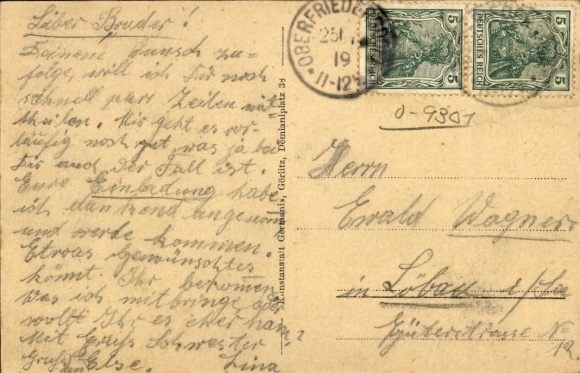 Läber Bruder!
Deinem Wunsch zu-
folge, will ich Dir noch
schnell parr Zeilen mit
theilen. Mir geht es vor-
läufig noch gut, was ja bei
Dir auch der Fall ist.
Eure Einladung habe
ich dankend angenom
und werde kommen.
Etwas Gewünschtes
könnt Ihr bekommen
was ich mitbringe oder
wollt Ihr es eher ham?
Mit Gruß Schwester
Gruß an Else. Lina
Konstanstalt Germania, Görlitz, Demianiplatz 34
OBERFRIEDERS
25
19
11-12
5 DEUTSCHES REICH 5
5 DEUTSCHES REICH 5
0-9301
Herrn
Ewald Wagner
in Löbau i/Sa
Güterstrasse No
12.